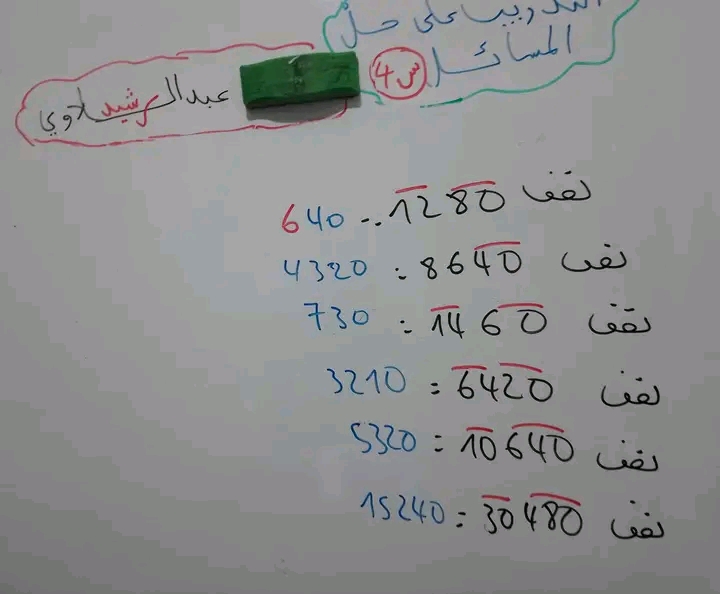 التدريب على حل
المسائل
س4
عبدالرشيد لاوي
نصف 1280 .. 640
نصف 8640 : 4320
نصف 1460 : 730
نصف 6420 = 3210
نصف 10640 = 5320
نصف 30480 = 15240